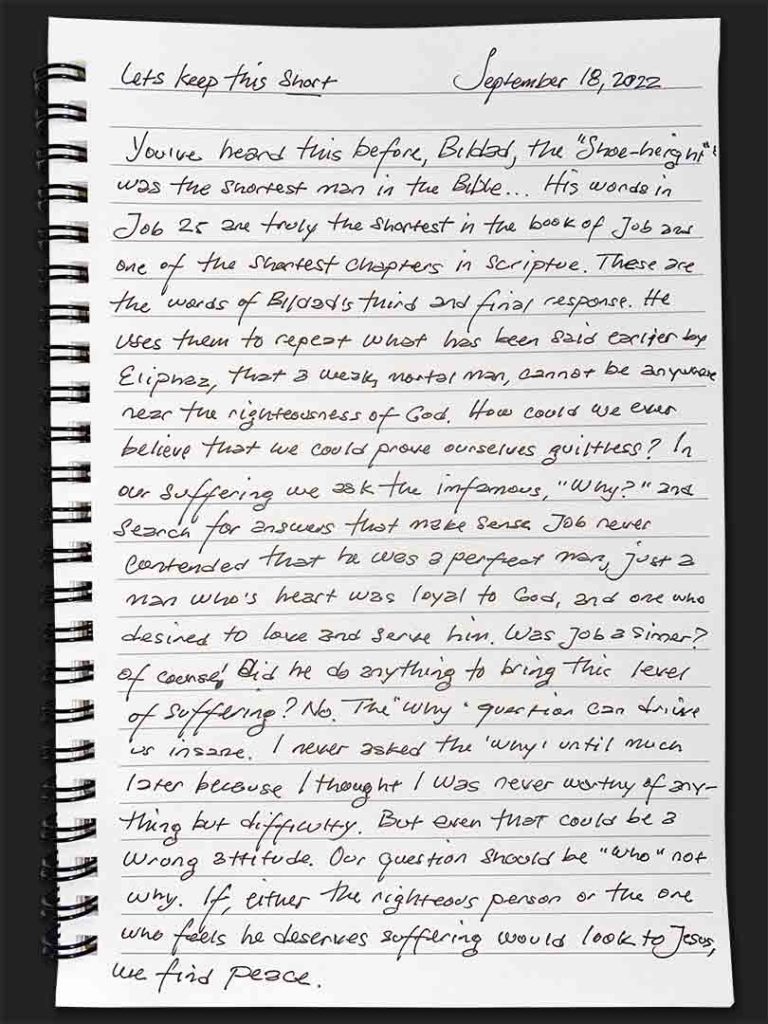 Lets keep this Short September 18, 2022
You've heard this before, Bildad, the "Shoe-height"
was the shortest man in the Bible... His words in
Job 25 are truly the shortest in the book of Job and
one of the shortest chapters in scripture. These are
the words of Bildad's third and final response. He
uses them to repeat what has been said earlier by
Eliphaz, that a weak, mortal man, cannot be anywhere
near the righteousness of God. How could we ever
believe that we could prove ourselves guiltless? In
our suffering we ask the infamous, "Why?" and
search for answers that make sense. Job never
contended that he was a perfect man, just a
man who's heart was loyal to God, and one who
desired to love and serve him. Was Job a sinner?
Of course! Did he do anything to bring this level
of suffering? No. The "Why" question can drive
us insane. I never asked the 'why' until much
later because I thought I was never worthy of any-
thing but difficulty. But even that could be a
wrong attitude. Our question should be "who" not
why. If, either the righteous person or the one
who feels he deserves suffering would look to Jesus,
we find peace.